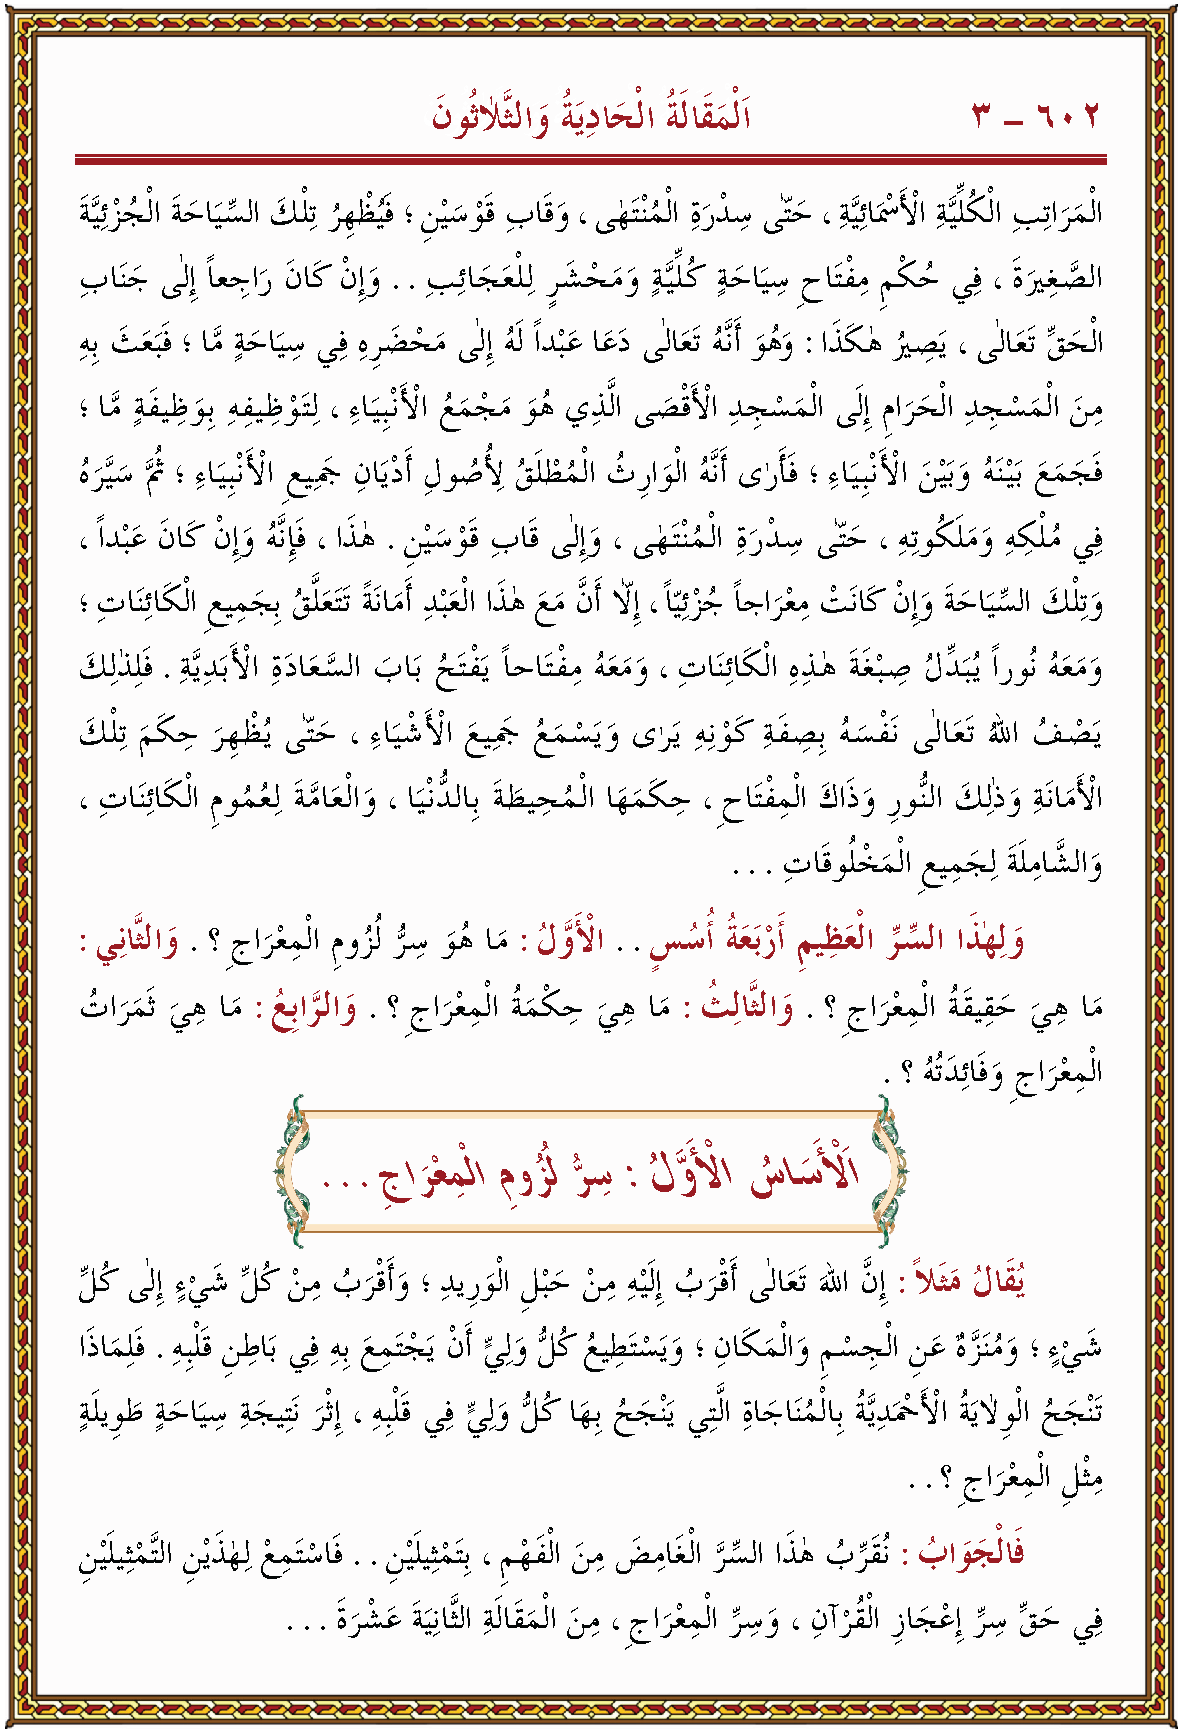 ٦٠٢ – ٣ اَلْمَقَالَةُ الْحَادِيَةُ وَالثَّلاٰثُونَ
الْمَرَاتِبِ الْكُلِّيَّةِ الْأَسْمَائِيَّةِ ، حَتّٰى سِدْرَةِ الْمُنْتَهٰى ، وَقَابِ قَوْسَيْنِ ؛ فَيُظْهِرُ تِلْكَ السِّيَاحَةَ الْجُزْئِيَّةَ
الصَّغِيرَةَ ، فِي حُكْمِ مِفْتَاحِ سِيَاحَةٍ كُلِّيَّةٍ وَمَحْشَرٍ لِلْعَجَائِبِ . . وَإِنْ كَانَ رَاجِعاً إِلٰى جَنَابِ
الْحَقِّ تَعَالٰى ، يَصِيرُ هٰكَذَا : وَهُوَ أَنَّهُ تَعَالٰى دَعَا عَبْداً لَهُ إِلٰى مَحْضَرِهِ فِي سِيَاحَةٍ مَّا ؛ فَبَعَثَ بِهِ
مِنَ الْمَسْجِدِ الْحَرَامِ إِلَى الْمَسْجِدِ الْأَقْصَى الَّذِي هُوَ مَجْمَعُ الْأَنْبِيَاءِ ، لِتَوْظِيفِهِ بِوَظِيفَةٍ مَّا ؛
فَجَمَعَ بَيْنَهُ وَبَيْنَ الْأَنْبِيَاءِ ؛ فَأَرٰى أَنَّهُ الْوَارِثُ الْمُطْلَقُ لِأُصُولِ أَدْيَانِ جَمِيعِ الْأَنْبِيَاءِ ؛ ثُمَّ سَيَّرَهُ
فِي مُلْكِهِ وَمَلَكُوتِهِ ، حَتّٰى سِدْرَةِ الْمُنْتَهٰى ، وَإِلٰى قَابِ قَوْسَيْنِ . هٰذَا ، فَإِنَّهُ وَإِنْ كَانَ عَبْداً ،
وَتِلْكَ السِّيَاحَةَ وَإِنْ كَانَتْ مِعْرَاجاً جُزْئِيّاً ، إِلاّٰ أَنَّ مَعَ هٰذَا الْعَبْدِ أَمَانَةً تَتَعَلَّقُ بِجَمِيعِ الْكَائِنَاتِ ؛
وَمَعَهُ نُوراً يُبَدِّلُ صِبْغَةَ هٰذِهِ الْكَائِنَاتِ ، وَمَعَهُ مِفْتَاحاً يَفْتَحُ بَابَ السَّعَادَةِ الْأَبَدِيَّةِ . فَلِذٰلِكَ
يَصْفُ اللهُ تَعَالٰى نَفْسَهُ بِصِفَةِ كَوْنِهِ يَرٰى وَيَسْمَعُ جَمِيعَ الْأَشْيَاءِ ، حَتّٰى يُظْهِرَ حِكَمَ تِلْكَ
الْأَمَانَةِ وَذٰلِكَ النُّورِ وَذَاكَ الْمِفْتَاحِ ، حِكَمَهَا الْمُحِيطَةَ بِالدُّنْيَا ، وَالْعَامَّةَ لِعُمُومِ الْكَائِنَاتِ ،
وَالشَّامِلَةَ لِجَمِيعِ الْمَخْلُوقَاتِ . . .
وَلِهٰذَا السِّرِّ الْعَظِيمِ أَرْبَعَةُ أُسُسٍ . . الْأَوَّلُ : مَا هُوَ سِرُّ لُزُومِ الْمِعْرَاجِ ؟ . وَالثَّانِي :
مَا هِيَ حَقِيقَةُ الْمِعْرَاجِ ؟ . وَالثَّالِثُ : مَا هِيَ حِكْمَةُ الْمِعْرَاجِ ؟ . وَالرَّابِعُ : مَا هِيَ ثَمَرَاتُ
الْمِعْرَاجِ وَفَائِدَتُهُ ؟ .
اَلْأَسَاسُ الْأَوَّلُ : سِرُّ لُزُومِ الْمِعْرَاجِ . . .
يُقَالُ مَثَلاً : إِنَّ اللهَ تَعَالٰى أَقْرَبُ إِلَيْهِ مِنْ حَبْلِ الْوَرِيدِ ؛ وَأَقْرَبُ مِنْ كُلِّ شَيْءٍ إِلٰى كُلِّ
شَيْءٍ ؛ وَمُنَزَّهٌ عَنِ الْجِسْمِ وَالْمَكَانِ ؛ وَيَسْتَطِيعُ كُلُّ وَلِيٍّ أَنْ يَجْتَمِعَ بِهِ فِي بَاطِنِ قَلْبِهِ . فَلِمَاذَا
تَنْجَحُ الْوِلاَيَةُ الْأَحْمَدِيَّةُ بِالْمُنَاجَاةِ الَّتِي يَنْجَحُ بِهَا كُلُّ وَلِيٍّ فِي قَلْبِهِ ، إِثْرَ نَتِيجَةِ سِيَاحَةٍ طَوِيلَةٍ
مِثْلِ الْمِعْرَاجِ ؟ . .
فَالْجَوَابُ : نُقَرِّبُ هٰذَا السِّرَّ الْغَامِضَ مِنَ الْفَهْمِ ، بِتَمْثِيلَيْنِ . . فَاسْتَمِعْ لِهٰذَيْنِ التَّمْثِيلَيْنِ
فِي حَقِّ سِرِّ إِعْجَازِ الْقُرْآنِ ، وَسِرِّ الْمِعْرَاجِ ، مِنَ الْمَقَالَةِ الثَّانِيَةَ عَشْرَةَ . . .